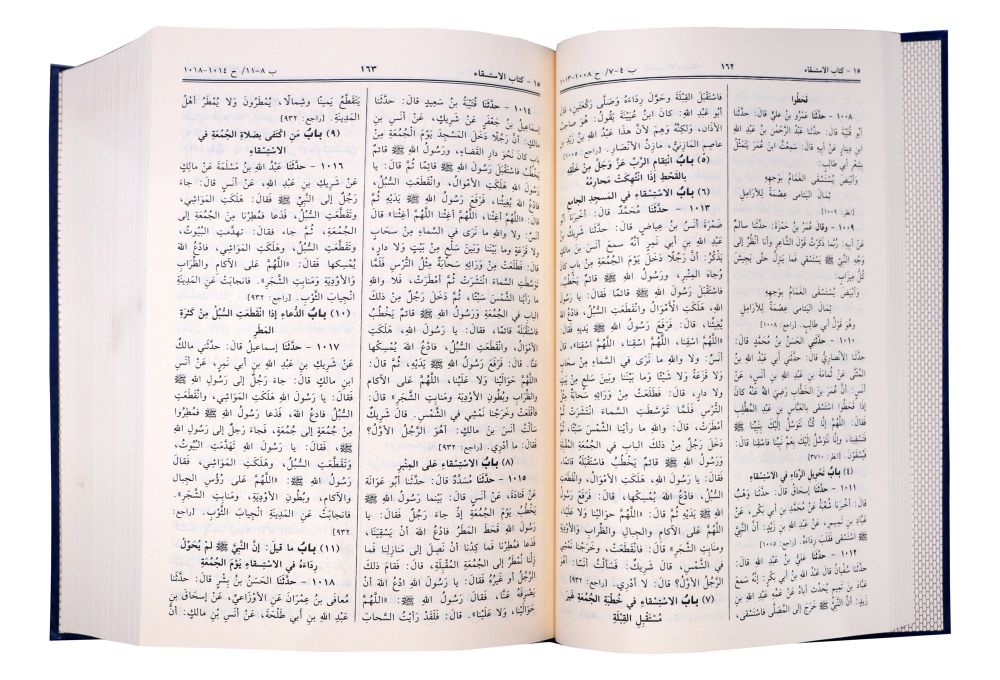 ١٥ - كتاب الاستسقاء
١٦٢
ب ٤-٧/ ح ١٠٠٨-١٠١٣
قَحَطُوا
١٠٠٨ - حَدَّثَنَا عَمْرُو بنُ عَلِيٍّ قالَ: حَدَّثَنَا
أَبُو قُتَيْبَةَ قالَ: حَدَّثَنَا عَبْدُ الرَّحْمٰنِ بنُ عَبْدِ اللهِ
ابنِ دِينَارٍ عَنْ أَبِيهِ قالَ: سَمِعْتُ ابنَ عُمَرَ يَتَمَثَّلُ
بِشِعْرِ أَبِي طَالِبٍ:
وَأَبْيَضَ يُسْتَسْقَى الْغَمَامُ بِوَجْهِهِ
ثِمَالُ الْيَتَامَى عِصْمَةٌ لِلْأَرَامِلِ
[انظر: ١٠٠٩]
١٠٠٩ - وَقالَ عُمَرُ بنُ حَمْزَةَ: حَدَّثَنَا سالِمٌ
عَنْ أَبِيهِ: رُبَّمَا ذَكَرْتُ قَوْلَ الشَّاعِرِ وَأَنَا أَنْظُرُ إِلَى
وَجْهِ النَّبِيِّ ﷺ يَسْتَسْقِي فَمَا يَنْزِلُ حَتَّى يَجِيشَ
كُلُّ مِيزَابٍ:
وَأَبْيَضَ يُسْتَسْقَى الْغَمَامُ بِوَجْهِهِ
ثِمَالُ الْيَتَامَى عِصْمَةٌ لِلْأَرَامِلِ
وَهُوَ قَوْلُ أَبِي طَالِبٍ. [راجع: ١٠٠٨]
١٠١٠ - حَدَّثَنَا الْحَسَنُ بنُ مُحَمَّدٍ قالَ:
حَدَّثَنَا الْأَنْصَارِيُّ قالَ: حَدَّثَنِي أَبِي عَبْدُ اللهِ بنُ
الْمُثَنَّى عَنْ ثُمَامَةَ بنِ عَبْدِ اللهِ بنِ أَنَسٍ، عَنْ أَنَسٍ
أَنَّ عُمَرَ بنَ الْخَطَّابِ رَضِيَ اللهُ عَنْهُ كانَ
إِذَا قَحَطُوا اسْتَسْقَى بِالْعَبَّاسِ بنِ عَبْدِ الْمُطَّلِبِ
فَقَالَ: اللَّهُمَّ إِنَّا كُنَّا نَتَوَسَّلُ إِلَيْكَ بِنَبِيِّنَا ﷺ
فَتَسْقِينَا، وَإِنَّا نَتَوَسَّلُ إِلَيْكَ بِعَمِّ نَبِيِّنَا فَاسْقِنَا قالَ:
فَيُسْقَوْنَ. [انظر: ٣٧١٠]
(٤) بَابُ تَحْوِيلِ الرِّدَاءِ في الاسْتِسْقَاءِ
١٠١١ - حَدَّثَنَا إِسْحَاقُ قالَ: حَدَّثَنَا وَهْبٌ
قالَ: أَخْبَرَنَا شُعْبَةُ عَنْ مُحَمَّدِ بنِ أَبِي بَكْرٍ، عَنْ
عَبَّادِ بنِ تَمِيمٍ، عَنْ عَبْدِ اللهِ بنِ زَيْدٍ: أَنَّ النَّبِيَّ
ﷺ اسْتَسْقَى فَقَلَبَ رِدَاءَهُ. [راجع: ١٠٠٥]
١٠١٢ - حَدَّثَنَا عَلِيُّ بنُ عَبْدِ اللهِ قالَ:
حَدَّثَنَا سُفْيَانُ قالَ عَبْدُ اللهِ بنُ أَبِي بَكْرٍ: إِنَّهُ سَمِعَ
عَبَّادَ بنَ تَمِيمٍ يُحَدِّثُ أَبَاهُ عَنْ عَمِّهِ عَبْدِ اللهِ بنِ
زَيْدٍ: أَنَّ النَّبِيَّ ﷺ خَرَجَ إِلَى الْمُصَلَّى فَاسْتَسْقَى،
فَاسْتَقْبَلَ الْقِبْلَةَ وَحَوَّلَ رِدَاءَهُ وَصَلَّى رَكْعَتَيْنِ. قالَ
أَبُو عَبْدِ اللهِ: كانَ ابْنُ عُيَيْنَةَ يَقُولُ: هُوَ صَاحِبُ
الْأَذَانِ، وَلٰكِنَّهُ وَهِمَ لِأَنَّ هذَا عَبْدُ اللهِ بنُ زَيْدِ بنِ
عاصِمٍ الْمازِنِيُّ، مازِنُ الْأَنْصَارِ. [راجع: ١٠٠٥]
(٥) بَابُ انْتِقَامِ الرَّبِّ عَزَّ وَجَلَّ مِنْ خَلْقِهِ
بِالْقَحْطِ إِذَا انْتُهِكَتْ مَحَارِمُهُ
(٦) بَابُ الاسْتِسْقَاءِ في الْمَسْجِدِ الْجَامِعِ
١٠١٣ - حَدَّثَنَا مُحَمَّدٌ قالَ: أَخْبَرَنَا أَبُو
ضَمْرَةَ أَنَسُ بنُ عِيَاضٍ قالَ: حَدَّثَنَا شَرِيكُ بنُ
عَبْدِ اللهِ بنِ أَبِي نَمِرٍ أَنَّهُ سَمِعَ أَنَسَ بنَ مالِكٍ
يَذْكُرُ: أَنَّ رَجُلًا دَخَلَ يَوْمَ الْجُمُعَةِ مِنْ بَابٍ كانَ
وُجَاهَ الْمِنْبَرِ، وَرَسُولُ اللهِ ﷺ قائِمٌ يَخْطُبُ
فَاسْتَقْبَلَ رَسُولَ اللهِ ﷺ قائِمًا فَقالَ: يا رَسُولَ
اللهِ، هَلَكَتِ الْأَمْوَالُ، وَانْقَطَعَتِ السُّبُلُ، فَادْعُ اللهَ
يُغِيثُنَا، قالَ: فَرَفَعَ رَسُولُ اللهِ ﷺ يَدَيْهِ فَقَالَ:
«اللَّهُمَّ اسْقِنَا، اللَّهُمَّ اسْقِنَا، اللَّهُمَّ اسْقِنَا» قالَ
أَنَسٌ: وَلا وَاللهِ ما نَرَى في السَّمَاءِ مِنْ سَحَابٍ
وَلا قَزَعَةً وَلا شَيْئًا وَما بَيْنَنَا وَبَينَ سَلْعٍ مِنْ بَيْتٍ
وَلا دارٍ، قالَ: فَطَلَعَتْ مِنْ وَرَائِهِ سَحَابَةٌ مِثْلُ
التُّرْسِ فَلَمَّا تَوَسَّطَتِ السَّمَاءَ انْتَشَرَتْ ثُمَّ
أَمْطَرَتْ، قالَ: وَاللهِ ما رَأَيْنَا الشَّمْسَ سِتًّا، ثُمَّ
دَخَلَ رَجُلٌ مِنْ ذلِكَ الْبَابِ في الْجُمُعَةِ الْمُقْبِلَةِ
وَرَسُولُ اللهِ ﷺ قائِمٌ يَخْطُبُ فَاسْتَقْبَلَهُ قائِمًا
فَقَالَ: يا رَسُولَ اللهِ، هَلَكَتِ الْأَمْوَالُ، وَانْقَطَعَتِ
السُّبُلُ، فَادْعُ اللهَ يُمْسِكْهَا، قالَ: فَرَفَعَ رَسُولُ اللهِ
ﷺ يَدَيْهِ ثُمَّ قالَ: «اللَّهُمَّ حَوَالَيْنَا وَلا عَلَيْنَا،
اللَّهُمَّ عَلَى الْآكامِ وَالْجِبَالِ وَالظِّرَابِ وَالْأَوْدِيَةِ
وَمَنَابِتِ الشَّجَرِ» قالَ: فَانْقَطَعَتْ، وَخَرَجْنَا نَمْشِي
في الشَّمْسِ، قالَ شَرِيكٌ: فَسَأَلْتُ أَنَسًا: أَهُوَ
الرَّجُلُ الْأَوَّلُ؟ قالَ: لا أَدْرِي. [راجع: ٩٣٢]
(٧) بَابُ الاسْتِسْقَاءِ في خُطْبَةِ الْجُمُعَةِ غَيْرَ
مُسْتَقْبِلِ الْقِبْلَةِ
١٥ - كتاب الاستسقاء
١٦٣
ب ٨-١١/ ح ١٠١٤-١٠١٨
١٠١٤ - حَدَّثَنَا قُتَيْبَةُ بنُ سَعِيدٍ قالَ: حَدَّثَنَا
إِسْمَاعِيلُ بنُ جَعْفَرٍ عَنْ شَرِيكٍ، عَنْ أَنَسِ بنِ
مَالِكٍ: أَنَّ رَجُلًا دَخَلَ الْمَسْجِدَ يَوْمَ الْجُمُعَةِ مِنْ
بَابٍ كانَ نَحْوَ دَارِ الْقَضَاءِ، وَرَسُولُ اللهِ ﷺ قائِمٌ
يَخْطُبُ فَاسْتَقْبَلَ رَسُولَ اللهِ ﷺ قائِمًا ثُمَّ قالَ: يا
رَسُولَ اللهِ هَلَكَتِ الْأَمْوَالُ، وَانْقَطَعَتِ السُّبُلُ،
فَادْعُ اللهَ يُغِيثُنَا، فَرَفَعَ رَسُولُ اللهِ ﷺ يَدَيْهِ ثُمَّ
قالَ: «اللَّهُمَّ أَغِثْنَا، اللَّهُمَّ أَغِثْنَا، اللَّهُمَّ أَغِثْنَا» قالَ
أَنَسٌ: وَلا وَاللهِ ما نَرَى في السَّمَاءِ مِنْ سَحَابٍ
وَلا قَزَعَةً وَما بَيْنَنَا وَبَيْنَ سَلْعٍ مِنْ بَيْتٍ وَلا دارٍ،
قالَ: فَطَلَعَتْ مِنْ وَرَائِهِ سَحَابَةٌ مِثْلُ التُّرْسِ فَلَمَّا
تَوَسَّطَتِ السَّمَاءَ انْتَشَرَتْ ثُمَّ أَمْطَرَتْ، فَلا وَاللهِ
ما رَأَيْنَا الشَّمْسَ سَبْتًا، ثُمَّ دَخَلَ رَجُلٌ مِنْ ذلِكَ
الْبَابِ في الْجُمُعَةِ وَرَسُولُ اللهِ ﷺ قائِمٌ يَخْطُبُ
فَاسْتَقْبَلَهُ قائِمًا، فَقَالَ: يا رَسُولَ اللهِ، هَلَكَتِ
الْأَمْوَالُ، وَانْقَطَعَتِ السُّبُلُ، فَادْعُ اللهَ يُمْسِكْهَا
عَنَّا. قالَ: فَرَفَعَ رَسُولُ اللهِ ﷺ يَدَيْهِ، ثُمَّ قالَ:
«اللَّهُمَّ حَوَالَيْنَا وَلا عَلَيْنَا، اللَّهُمَّ عَلَى الْآكامِ
وَالظِّرَابِ وَبُطُونِ الْأَوْدِيَةِ وَمَنَابِتِ الشَّجَرِ» قالَ:
فَأَقْلَعَتْ وَخَرَجْنَا نَمْشِي في الشَّمْسِ. قالَ شَرِيكٌ:
سَأَلْتُ أَنَسَ بنَ مالِكٍ: أَهُوَ الرَّجُلُ الْأَوَّلُ؟
فَقَالَ: ما أَدْرِي. [راجع: ٩٣٢]
(٨) بَابُ الاسْتِسْقَاءِ عَلَى الْمِنْبَرِ
١٠١٥ - حَدَّثَنَا مُسَدَّدٌ قالَ: حَدَّثَنَا أَبُو عَوَانَةَ
عَنْ قَتَادَةَ، عَنْ أَنَسٍ قالَ: بَيْنَمَا رَسُولُ اللهِ ﷺ
يَخْطُبُ يَوْمَ الْجُمُعَةِ إِذْ جَاءَ رَجُلٌ فَقَالَ: يا
رَسُولَ اللهِ قَحَطَ الْمَطَرُ فَادْعُ اللهَ أَنْ يَسْقِيَنَا،
فَدَعَا فَمُطِرْنَا فَما كِدْنَا أَنْ نَصِلَ إِلَى مَنَازِلِنَا فَما
زِلْنَا نُمْطَرُ إِلَى الْجُمُعَةِ الْمُقْبِلَةِ، قالَ: فَقَامَ ذلِكَ
الرَّجُلُ أَوْ غَيْرُهُ فَقَالَ: يا رَسُولَ اللهِ ادْعُ اللهَ أَنْ
يَصْرِفَهُ عَنَّا، فَقَالَ رَسُولُ اللهِ ﷺ: «اللَّهُمَّ
حَوَالَيْنَا وَلا عَلَيْنَا». قالَ: فَلَقَدْ رَأَيْتُ السَّحَابَ
يَتَقَطَّعُ يَمِينًا وَشِمَالًا، يُمْطَرُونَ وَلا يُمْطَرُ أَهْلُ
الْمَدِينَةِ. [راجع: ٩٣٢]
(٩) بَابُ مَنِ اكْتَفَى بِصَلَاةِ الْجُمُعَةِ في
الاسْتِسْقَاءِ
١٠١٦ - حَدَّثَنَا عَبْدُ اللهِ بنُ مَسْلَمَةَ عَنْ مالِكٍ
عَنْ شَرِيكِ بنِ عَبْدِ اللهِ، عَنْ أَنَسٍ قالَ: جَاءَ
رَجُلٌ إِلَى النَّبِيِّ ﷺ فَقَالَ: هَلَكَتِ الْمَوَاشِي،
وَتَقَطَّعَتِ السُّبُلُ، فَدَعَا فَمُطِرْنَا مِنَ الْجُمُعَةِ إِلَى
الْجُمُعَةِ، ثُمَّ جاءَ فَقَالَ: تَهَدَّمَتِ الْبُيُوتُ،
وَتَقَطَّعَتِ السُّبُلُ، وَهَلَكَتِ الْمَوَاشِي، فَادْعُ اللهَ
يُمْسِكْهَا فَقَالَ: «اللَّهُمَّ عَلَى الآكامِ وَالظِّرَابِ
وَالْأَوْدِيَةِ وَمَنَابِتِ الشَّجَرِ». فَانْجَابَتْ عَنِ الْمَدِينَةِ
انْجِيَابَ الثَّوْبِ. [راجع: ٩٣٢]
(١٠) بَابُ الدُّعاءِ إِذَا انْقَطَعَتِ السُّبُلُ مِنْ كَثْرَةِ
الْمَطَرِ
١٠١٧ - حَدَّثَنَا إِسماعيلُ قالَ: حَدَّثَنِي مالِكٌ
عَنْ شَرِيكِ بنِ عَبْدِ اللهِ بنِ أَبِي نَمِرٍ، عَنْ أَنَسِ
ابنِ مالِكٍ قالَ: جَاءَ رَجُلٌ إِلَى رَسُولِ اللهِ ﷺ
فَقَالَ: يا رَسُولَ اللهِ هَلَكَتِ الْمَوَاشِي، وَانْقَطَعَتِ
السُّبُلُ فَادْعُ اللهَ، فَدَعَا رَسُولُ اللهِ ﷺ فَمُطِرُوا
مِنْ جُمُعَةٍ إِلَى جُمُعَةٍ، فَجَاءَ رَجُلٌ إِلَى رَسُولِ اللهِ
ﷺ فَقَالَ: يا رَسُولَ اللهِ تَهَدَّمَتِ الْبُيُوتُ،
وَتَقَطَّعَتِ السُّبُلُ، وَهَلَكَتِ الْمَوَاشِي، فَقَالَ
رَسُولُ اللهِ ﷺ: «اللَّهُمَّ عَلَى رُؤُسِ الْجِبَالِ
وَالآكامِ، وَبُطُونِ الْأَوْدِيَةِ، وَمَنَابِتِ الشَّجَرِ».
فَانْجَابَتْ عَنِ الْمَدِينَةِ انْجِيَابَ الثَّوْبِ. [راجع:
٩٣٢]
(١١) بَابُ ما قِيلَ: إِنَّ النَّبِيَّ ﷺ لَمْ يُحَوِّلْ
رِدَاءَهُ في الاسْتِسْقَاءِ يَوْمَ الْجُمُعَةِ
١٠١٨ - حَدَّثَنَا الْحَسَنُ بنُ بِشْرٍ قالَ: حَدَّثَنَا
مُعَافَى بنُ عِمْرَانَ عَنِ الْأَوْزَاعِيِّ، عَنْ إِسْحَاقَ بنِ
عَبْدِ اللهِ بنِ أَبِي طَلْحَةَ، عَنْ أَنَسِ بنِ مالِكٍ: أَنَّ